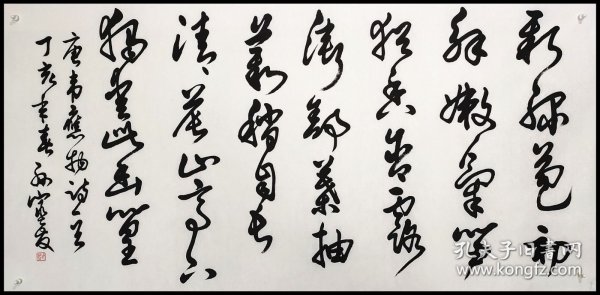 新緑苞初
解嫩氣笋
犹香含露
渐舒葉抽
丛稍自长
清晨止亭下
独爱此幽篁
唐韦應物诗一首
丁亥年春
孔夫子旧书网
www.kongfz.com